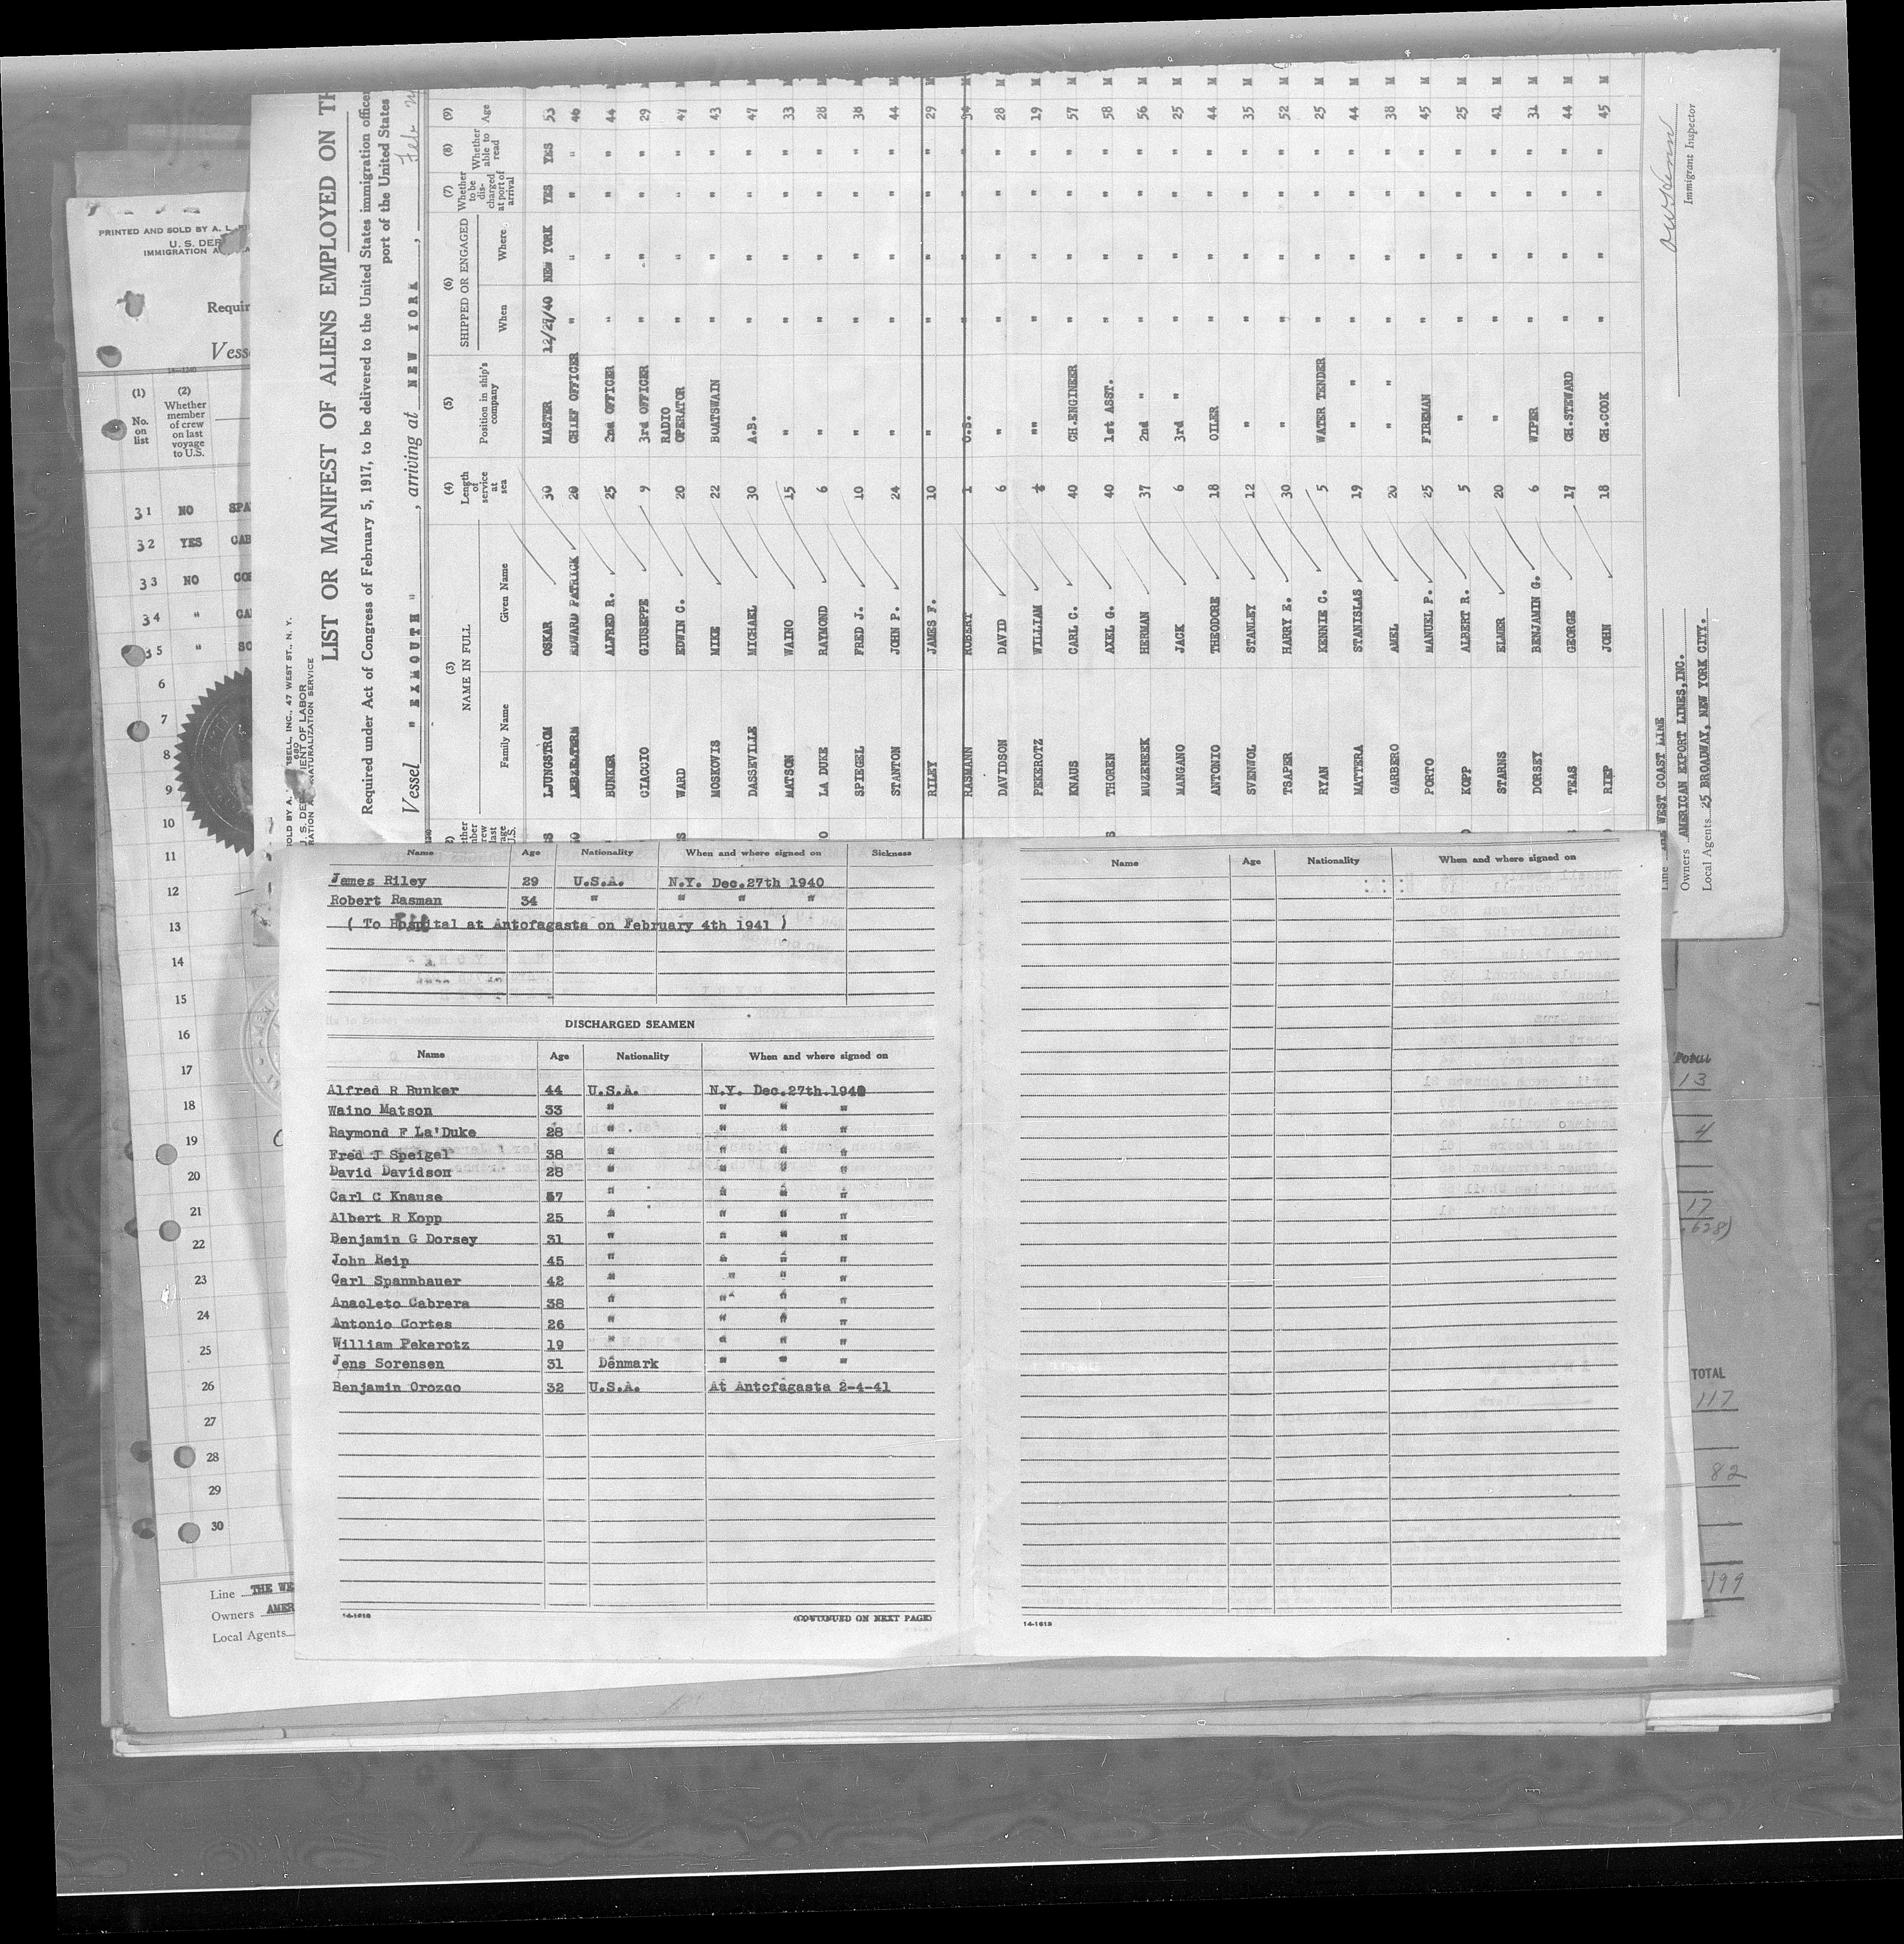 PRINTED AND SOLD BY A. L.
U. S. DEP
IMMIGRATION A
Requir
Vess
14-1240
(1) (2)
No. on list Whether member of crew on last voyage to U.S.
31 NO SPA
32 YES CAB
33 NO COR
34 " CA
35 " SO
6
7
8
9
10
11
12
13
14
15
16
17
18
19
20
21
22
23
24
25
26
27
28
29
30
Line THE WE
Owners AMER
Local Agents
LIST OR MANIFEST OF ALIENS EMPLOYED ON TH
Required under Act of Congress of February 5, 1917, to be delivered to the United States immigration officer
port of the United States
Vessel " EXMOUTH " , arriving at NEW YORK , Feb
(3) (4) (5) (6) (7) (8) (9)
NAME IN FULL Length of service at sea Position in ship's company SHIPPED OR ENGAGED Whether to be discharged at port of arrival Whether able to read Age
Family Name Given Name When Where
LJUNGSTROM OSKAR 30 MASTER 12/27/40 NEW YORK YES YES 53 M
EDWARD PATRICK 20 CHIEF OFFICER " " " " 46 M
BUNKER ALFRED R. 25 2nd OFFICER " " " " 44 M
CIACCIO GIUSEPPE 9 3rd OFFICER " " " " 29 M
WARD EDWIN C. 20 RADIO OPERATOR " " " " 47 M
MOSKOVIS MIKE 22 BOATSWAIN " " " " 43 M
DASSEVILLE MICHAEL 30 A.B. " " " " 47 M
MATSON WAINO 15 " " " " " 33 M
LA DUKE RAYMOND 6 " " " " " 28 M
SPIEGEL FRED J. 10 " " " " " 38 M
STANTON JOHN P. 24 " " " " " 44 M
RILEY JAMES F. 10 " " " " " 29 M
RASMANN ROBERT 1 O.S. " " " " 34 M
DAVIDSON DAVID 6 " " " " " 28 M
PEKEROTZ WILLIAM "" " " " " 19 M
KNAUS CARL C. 40 CH.ENGINEER " " " " 57 M
THOREN AXEL G. 40 1st ASST. " " " " 58 M
MUZENEEK HERMAN 37 2nd " " " " " 56 M
MANGANO JACK 6 3rd " " " " " 25 M
ANTONIO THEODORE 18 OILER " " " " 44 M
SVENVOL STANLEY 12 " " " " " 35 M
TSAPER HARRY E. 30 " " " " " 52 M
RYAN KENNIE C. 5 WATER TENDER " " " " 25 M
MATTERA STANISLAS 19 " " " " " " 44 M
GARBERO AMEL 20 " " " " " " 38 M
PORTO MANUEL P. 25 FIREMAN " " " " 45 M
KOPP ALBERT R. 5 " " " " " 25 M
STARNS ELMER 20 " " " " " 41 M
DORSEY BENJAMIN G. 6 WIPER " " " " 31 M
TEAS GEORGE 17 CH.STEWARD " " " " 44 M
RIEP JOHN 18 CH.COOK " " " " 45 M
Immigrant Inspector
Line THE WEST COAST LINE
Owners AMERICAN EXPORT LINES,INC.
Local Agents 25 BROADWAY, NEW YORK CITY.
Name Age Nationality When and where signed on Sickness
James Riley 29 U.S.A. N.Y. Dec.27th 1940
Robert Rasman 34 " " " "
( To Hospital at Antofagasta on February 4th 1941 )
DISCHARGED SEAMEN
Name Age Nationality When and where signed on
Alfred R Bunker 44 U.S.A. N.Y. Dec.27th.1940
Waino Matson 33 " " " "
Raymond F La'Duke 28 " " " "
Fred J Speigel 38 " " " "
David Davidson 28 " " " "
Carl C Knause 57 " " " "
Albert R Kopp 25 " " " "
Benjamin G Dorsey 31 " " " "
John Reip 45 " " " "
Carl Spannbauer 42 " " " "
Anacleto Cabrera 38 " " " "
Antonio Cortes 26 " " " "
William Pekerotz 19 " " " "
Jens Sorensen 31 Denmark " " "
Benjamin Orozco 32 U.S.A. At Antofagasta 2-4-41
14-1613
(CONTINUED ON NEXT PAGE)
Name Age Nationality When and where signed on
14-1613
Total
13
4
17
628)
TOTAL
117
82
199